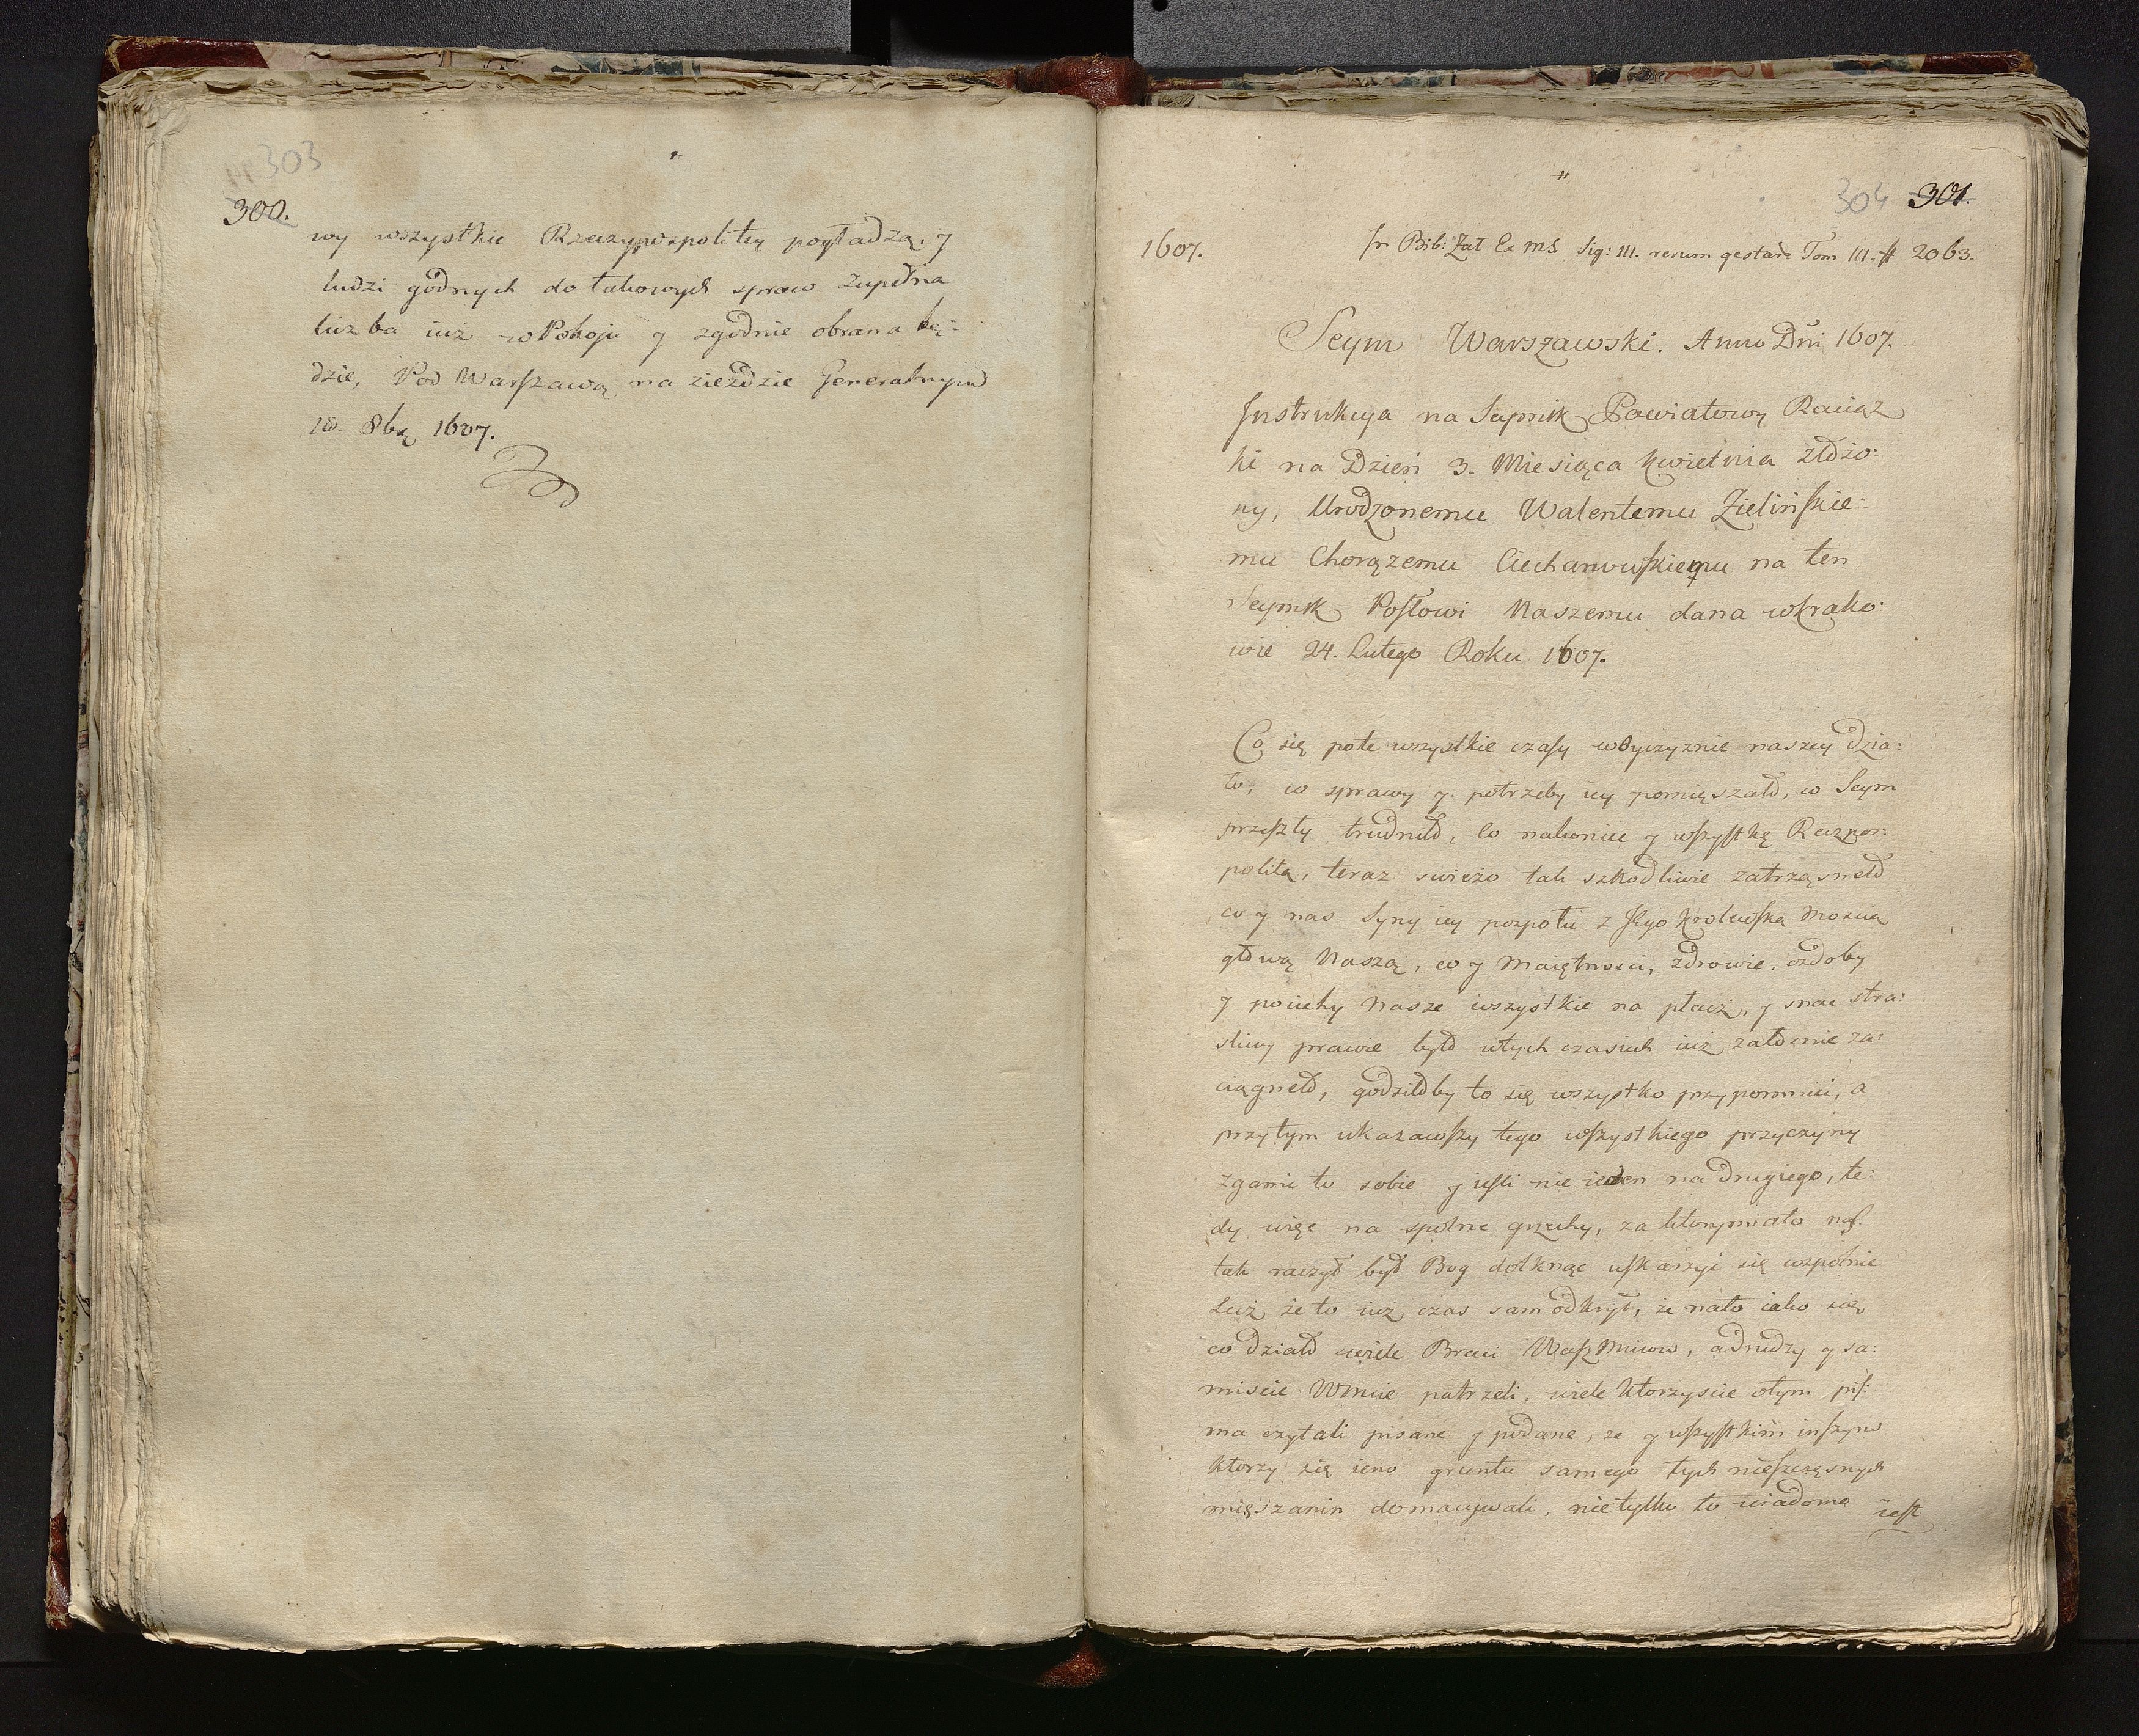 303
300.
wy wszystkie Rzeczypospolitey pogładzą. y
ludzi godnych do takowych spraw zupełna
liczba iuż w Pokoju y zgodnie obrana bę:
dzie, Pod Warszawą na zieździe Generalnym
1607.
304 301.
1607.
Jn Bib: Zał Ex MS Sig: III. rerum gestar: Tom III. 2063.
Seym Warszawski. Anno Dni 1607.
Jnstrukcya na Seymik Powiatowy Raciąz
ki na Dzień 3. Miesiąca Kwietnia złożo:
ny, Urodzonemu Walentemu Zielińskie:
mu Chorązemu Ciechanowskiemu na ten
Seymik Posłowi Naszemu dana w Krako:
wie 24. Lutego Roku 1607.
Co się po te wszystkie czasy w oyczyznie naszey dzia:
ło, co sprawy y potrzeby iey pomięszało, co Seym
przeszły trudniło, co nakoniec y wszystkę Rzczpos:
politą, teraz swieżo tak szkodliwie zatrząsneło
co y nas Syny iey pospołu z Jego Krolewską Moscią
głową Naszą, co y Maiętnosci, zdrowie, ozdoby
y pociechy Nasze wszystkie na płacz, y snac stra:
sliwy prawie było w tych czasiech iuż załosnie za:
ciągneło, godziłoby to się wszystko przypomnieć, a
przytym ukazawszy tego wszystkiego przyczyny
zganić to sobie y iesli nie ieden na drugiego, te:
dy więc na spolne grzechy, za ktorymiało nas
tak raczył był Bog dotknąc uskarzyć się wspolnie
Lecz że to iuż czas sam odkrył, że na to iako się
co działo wiele Braci Wasz Mciow, a drudzy y sa:
miscie WMcie patrzeli, wiele ktorzyscie o tym pis:
ma czytali pisane y podane, że y wszystkim inszym
ktorzy się ieno gruntu samego tych nieszczęsnych
mięszanin domacywali, nie tylko to wiadomo
iest